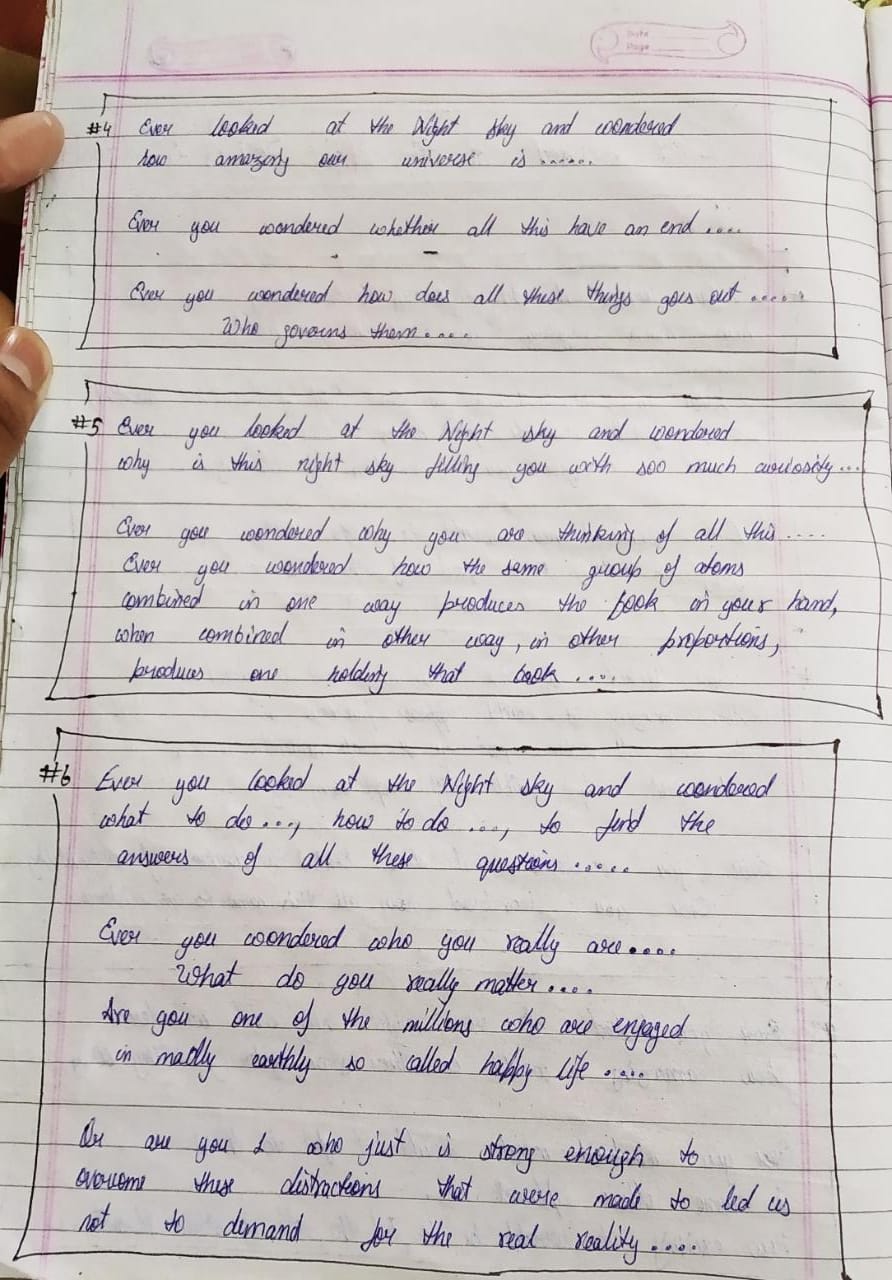 Date
Page
#4 Ever looked at the Night sky and wondered
how amazing our universe is ......
Ever you wondered whether all this have an end ....
Ever you wondered how does all these things goes out .....
Who governs them ....
#5 Ever you looked at the Night sky and wondered
why is this night sky filling you with soo much curiosity ...
Ever you wondered why you are thinking of all this ....
Ever you wondered how the same group of atoms
combined in one way produces the book in your hand,
when combined in other way, in other proportions,
produces one holding that book ....
#6 Ever you looked at the Night sky and wondered
what to do ..., how to do ..., to find the
answers of all these questions .....
Ever you wondered who you really are ....
What do you really matter ....
Are you one of the millions who are engaged
in madly earthly so called happy life ....
Or are you 1 who just is strong enough to
overcome these distractions that were made to led us
not to demand for the real reality ....